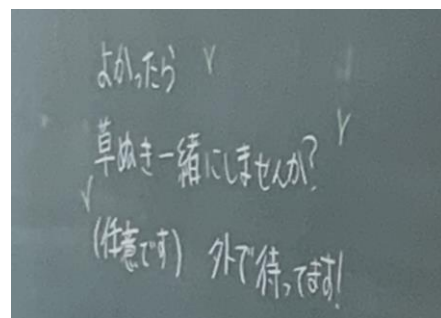 よかったら
草ぬき一緒にしませんか?
(任意です) 外で待ってます!